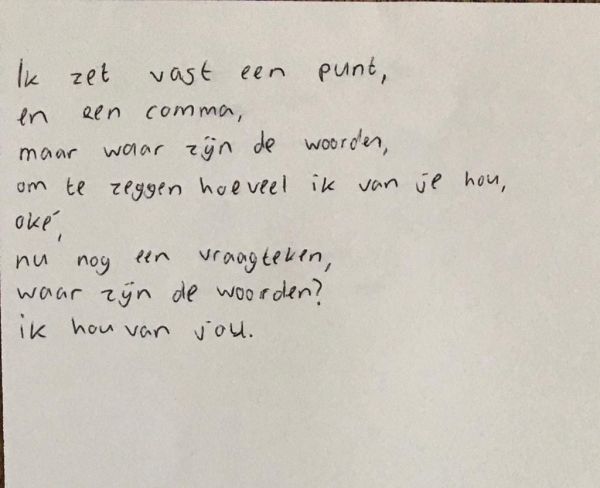 Ik zet vast een punt,
en een comma,
maar waar zijn de woorden,
om te zeggen hoeveel ik van je hou,
oké,
nu nog een vraagteken,
waar zijn de woorden?
ik hou van jou.